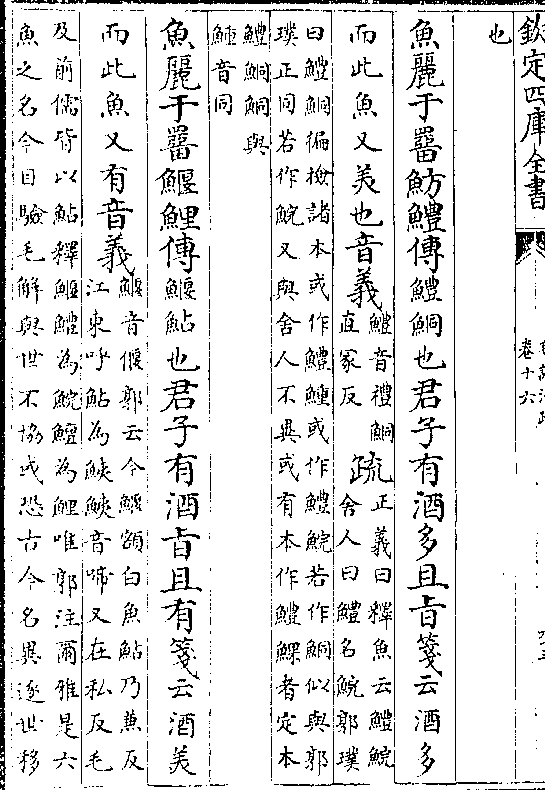 欽定四庫全書
卷十六
也
魚麗于罶魴鱧傳鱧鮦也君子有酒多且旨箋云酒多
而此魚又美也音義
鱧音禮鮦
直冢反
疏
正義曰釋魚云鱧鯇
舍人曰鱧名鯇郭璞
曰鱧鮦徧檢諸本或作鱧鯶或作鱧鯇若作鮦似與郭
璞正同若作鯇又與舍人不異或有本作鱧鰥者定本
鱧鮦鮦與
鯶音同
魚麗于罶鰋鯉傳鰋鮎也君子有酒旨且有箋云酒美
而此魚又有音義
鰋音偃郭云今鰋額白魚鮎乃兼反
江東呼鮎為鮧鮧音啼又在私反毛
及前儒皆以鮎釋鰋鱧為鯇鱣為鯉唯郭注爾雅是六
魚之名今目驗毛解與世不協或恐古今名異逐世移